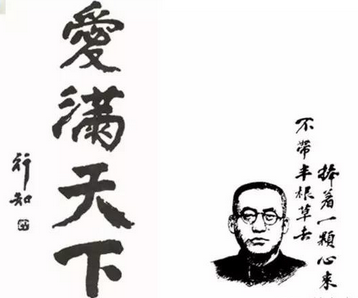 愛滿天下
行知
捧着一顆心来
不带半根草去